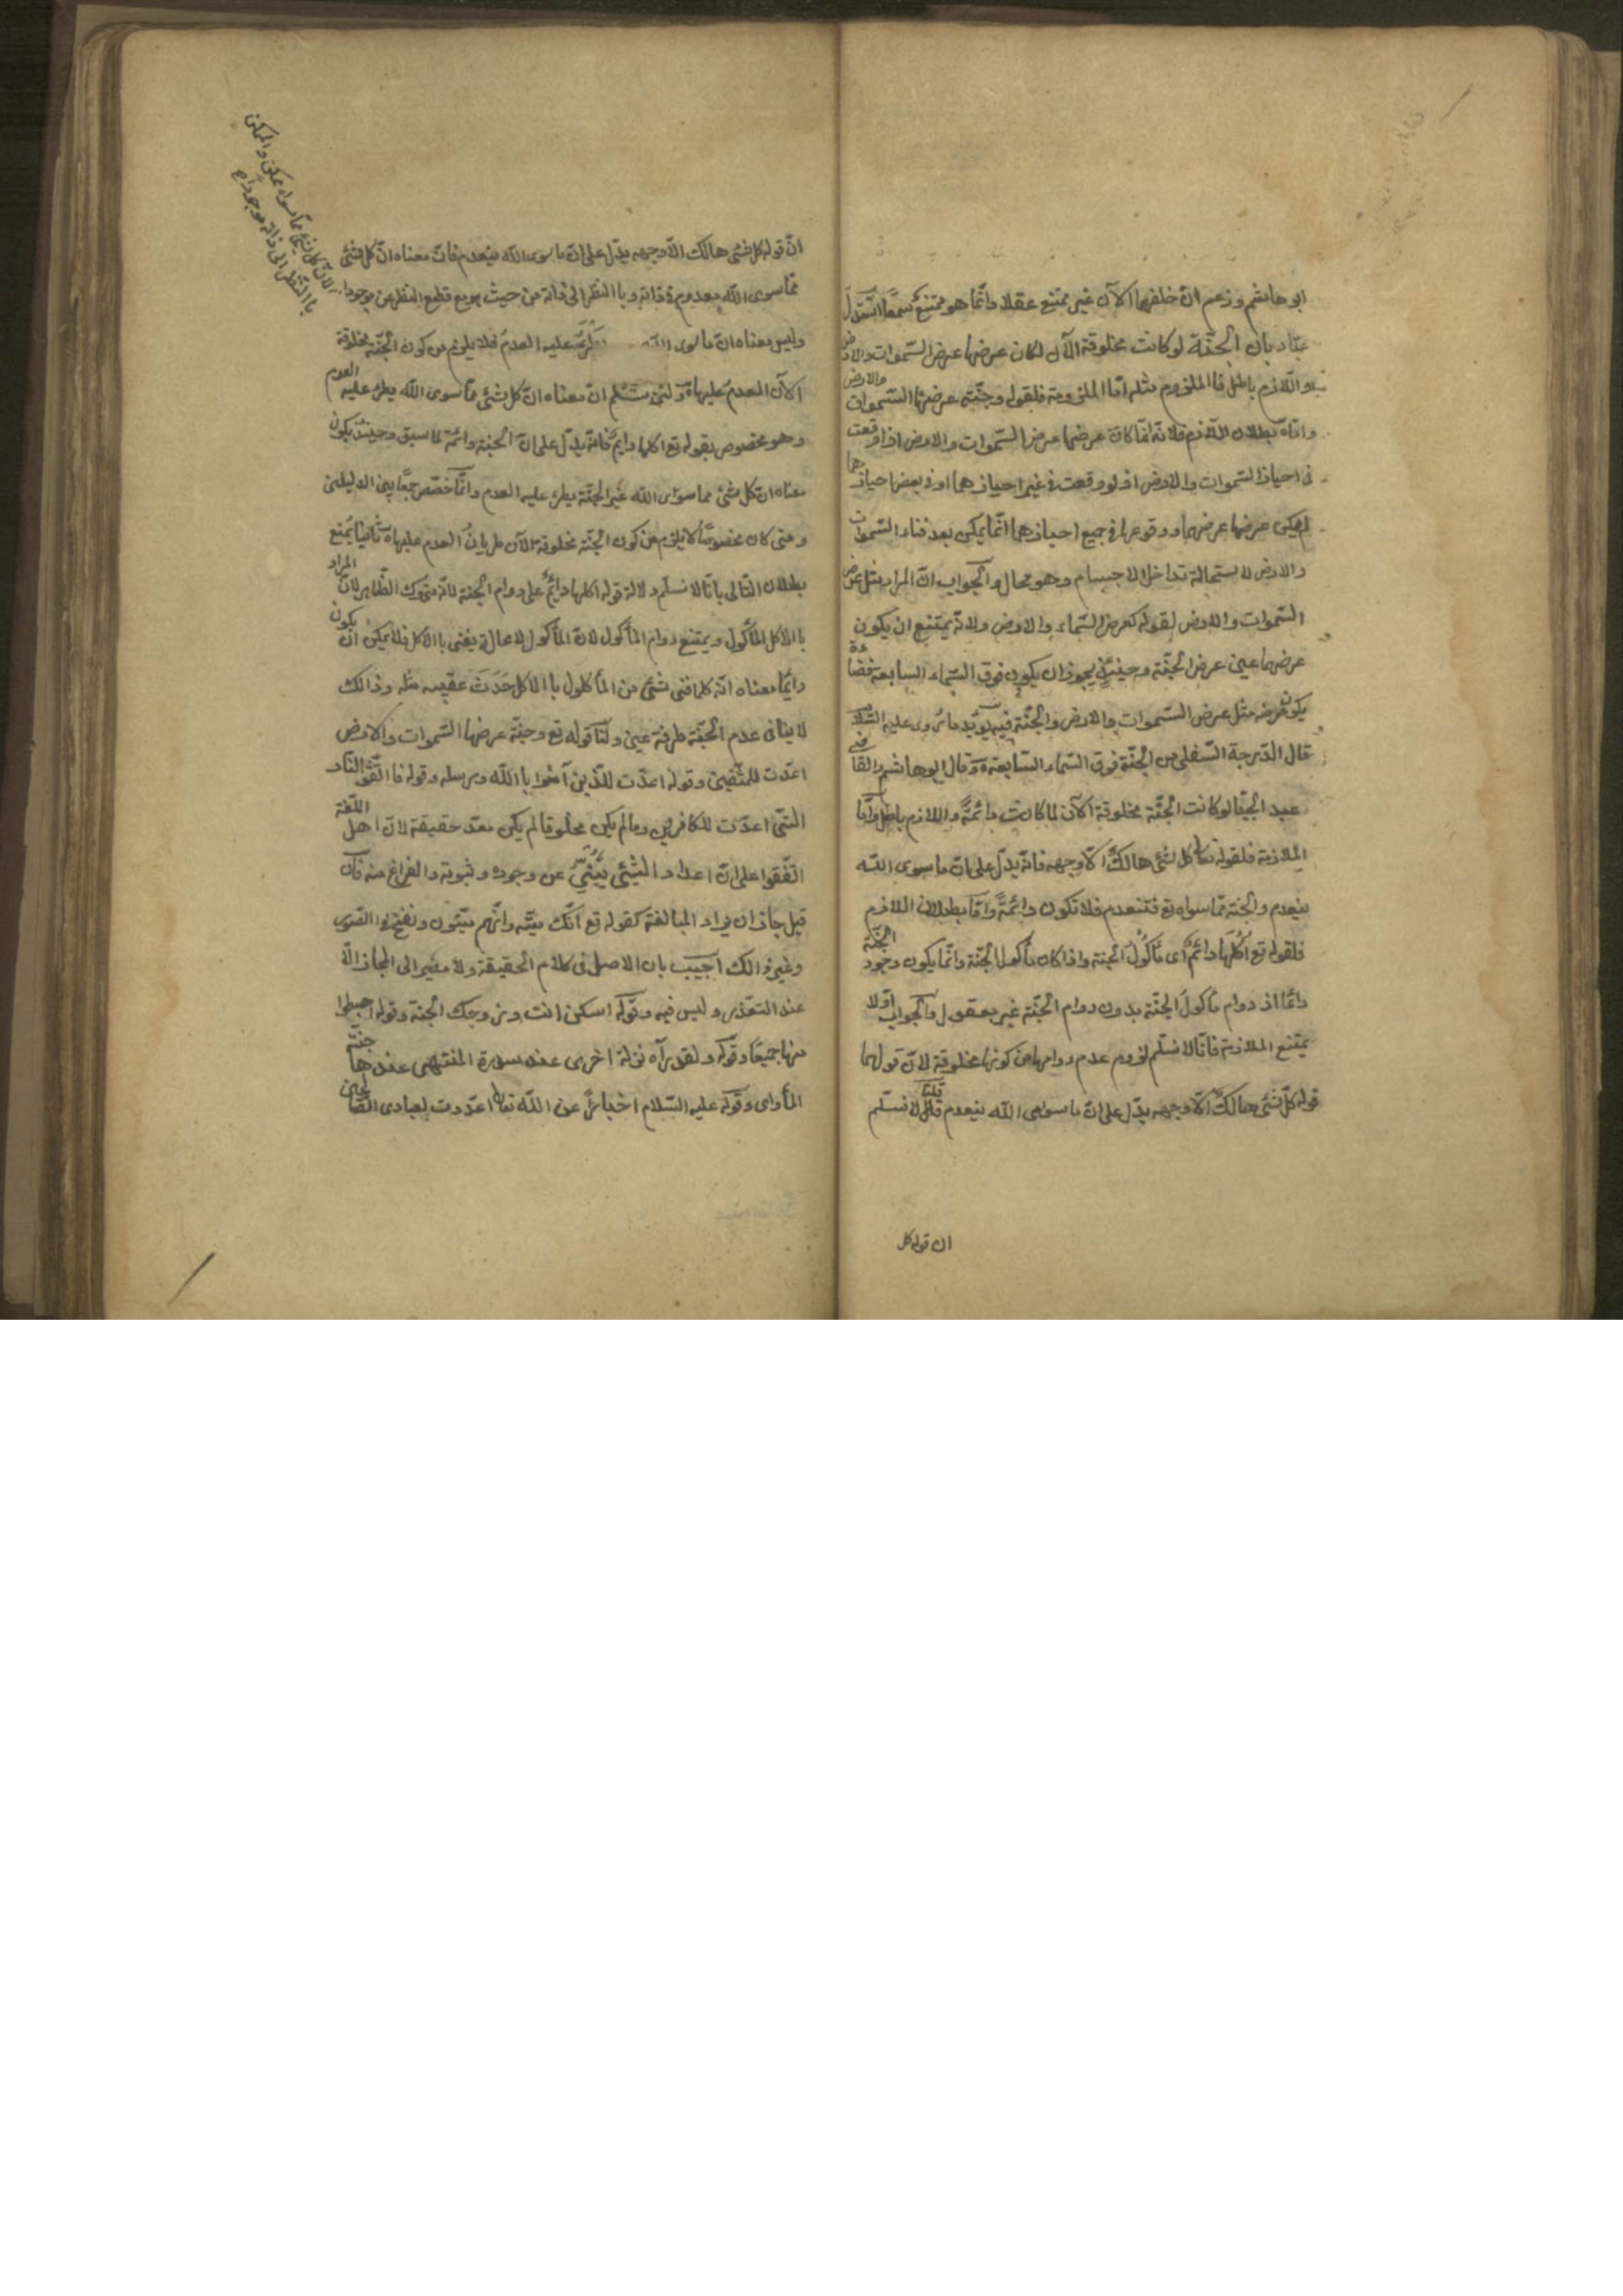 ابو هاشم وزعم ان خلقها الآن غير ممتنع عقلا وانما هو ممتنع سمعا استدل
عباد بان الجنة لو كانت مخلوقة الآن لكان عرضها عرض السموات والارض
واللازم باطل فالملزوم مثله اما الملزومة فلقوله وجنة عرضها السموات والارض
واما بطلان اللازم فلانه انما كان عرضها عرض السموات والارض اذا وقعت
فى احياز السموات والارض اذ لو وقعت فى غير احيازهما او فى بعض احيازهما
لم يكن عرضها عرضهما ووقوعها فى جميع احيازهما انما يمكن بعد فناء السموات
والارض لاستحالة تداخل الاجسام وهو محال والجواب ان المراد مثل عرض
السموات والارض لقوله كعرض السماء والارض ولانه يمتنع ان يكون
عرضهما عين عرض الجنة وحينئذ يجوز ان يكون فوق السماء السابعة فضاء
يكون عرضه مثل عرض السموات والارض والجنة فيه يؤيد ما روى عليه السلام
قال الدرجة السفلى من الجنة فوق السماء السابعة وقال ابو هاشم والقاضى
عبد الجبا لو كانت الجنة مخلوقة الآن لما كانت دائمة واللازم باطل واما
الملازمة فلقوله تعالى كل شئ هالك الا وجهه فانه يدل على ان ما سوى الله
ينعدم والجنة مما سواه تع فتنعدم فلا تكون دائمة واما بطلان اللازم
فلقوله تع اكلها دائم اى مأكول الجنة واذا كان مأكول الجنة وانما يكون وجود الجنة
دائما اذ دوام مأكول الجنة بدون دوام الجنة غير معقول والجواب اولا
يمتنع الملازمة فانا لا نسلم لزوم عدم دوامها من كونها مخلوقة لان قولهما
قوله كل شئ هالك الا وجهه يدل على ان ما سوى الله ينعدم قلنا لا نسلم
ان قوله كل
ان قوله كل شئ هالك الا وجهه يدل على ان ما سوى الله ينعدم فان معناه ان كل شئ
مما سوى الله معدوم فى ذاته وبا النظر الى ذاته من حيث هو مع قطع النظر عن موجوده
لان كل شئ مما سواه ممكن والممكن
با النظر الى ذاته
وليس معناه ان ما سوى الله يطرء عليه العدم فلا يلزم من كون الجنة مخلوقة
الآن العدم عليها ولئن سلم ان معناه ان كل شئ مما سوى الله يطرء عليه العدم
وهو مخصوص بقوله تع اكلها دايم فانه يدل على ان الجنة دائمة لما سبق وحينئذ يكون
معناه ان كل شئ مما سواى الله غير الجنة يطرء عليه العدم وانما خصص جمعا بين الدليلين
ومتى كان مخصوصا لا يلزم من كون الجنة مخلوقة الآن طريان العدم عليها وثانيا يمنع
بطلان التالى بانا لا نسلم دلالة قوله اكلها دائم على دوام الجنة لانه متروك الظاهر لان المراد
با الاكل المأكول ويمتنع دوام المأكول لان المأكول لا محالة يفنى با الاكل فلا يمكن ان يكون
دايما معناه انه كلما فنى شئ من المأكلول با الاكل حدث عقيبه مثله وذالك
لا ينافى عدم الجنة طرفة عين ولنا قوله تع وجنة عرضها السموات والارض
اعدت للمتقين وقوله اعدت للذين آمنوا با الله ورسله وقوله فا اتقو النار
التى اعدت للكافرين وما لم يكن مخلوقا لم يكن معد حقيقة لان اهل اللغة
اتفقوا على ان اعداد الشئ ينبئ عن وجوده وثبوته والفراغ منه فان
قيل جاز ان يراد المبالغة كقوله تع انك ميت وانهم ميتون ونفخ فى الصور
وغير ذالك اجيب بان الاصل فى كلام الحقيقة ولا مصير الى المجاز الا
عند التعذر وليس فيه وقوله اسكن انت وزوجك الجنة وقوله اهبطوا
منها جميعا وقوله ولقد رآه نزلة اخرى عند سدرة المنتهى عندها جنة
المأواى وقوله عليه السلام اخبارا عن الله تعالى اعددت لعبادى الصالحين